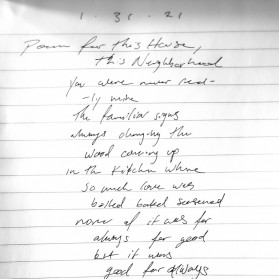 1 · 31 · 21
Poem for this House,
this Neighborhood
you were never real-
-ly mine
the familiar signs
always changing the
wood coming up
in the kitchen where
so much love was
boiled baked seasoned
none of it was for
always for good
but it was
good for always